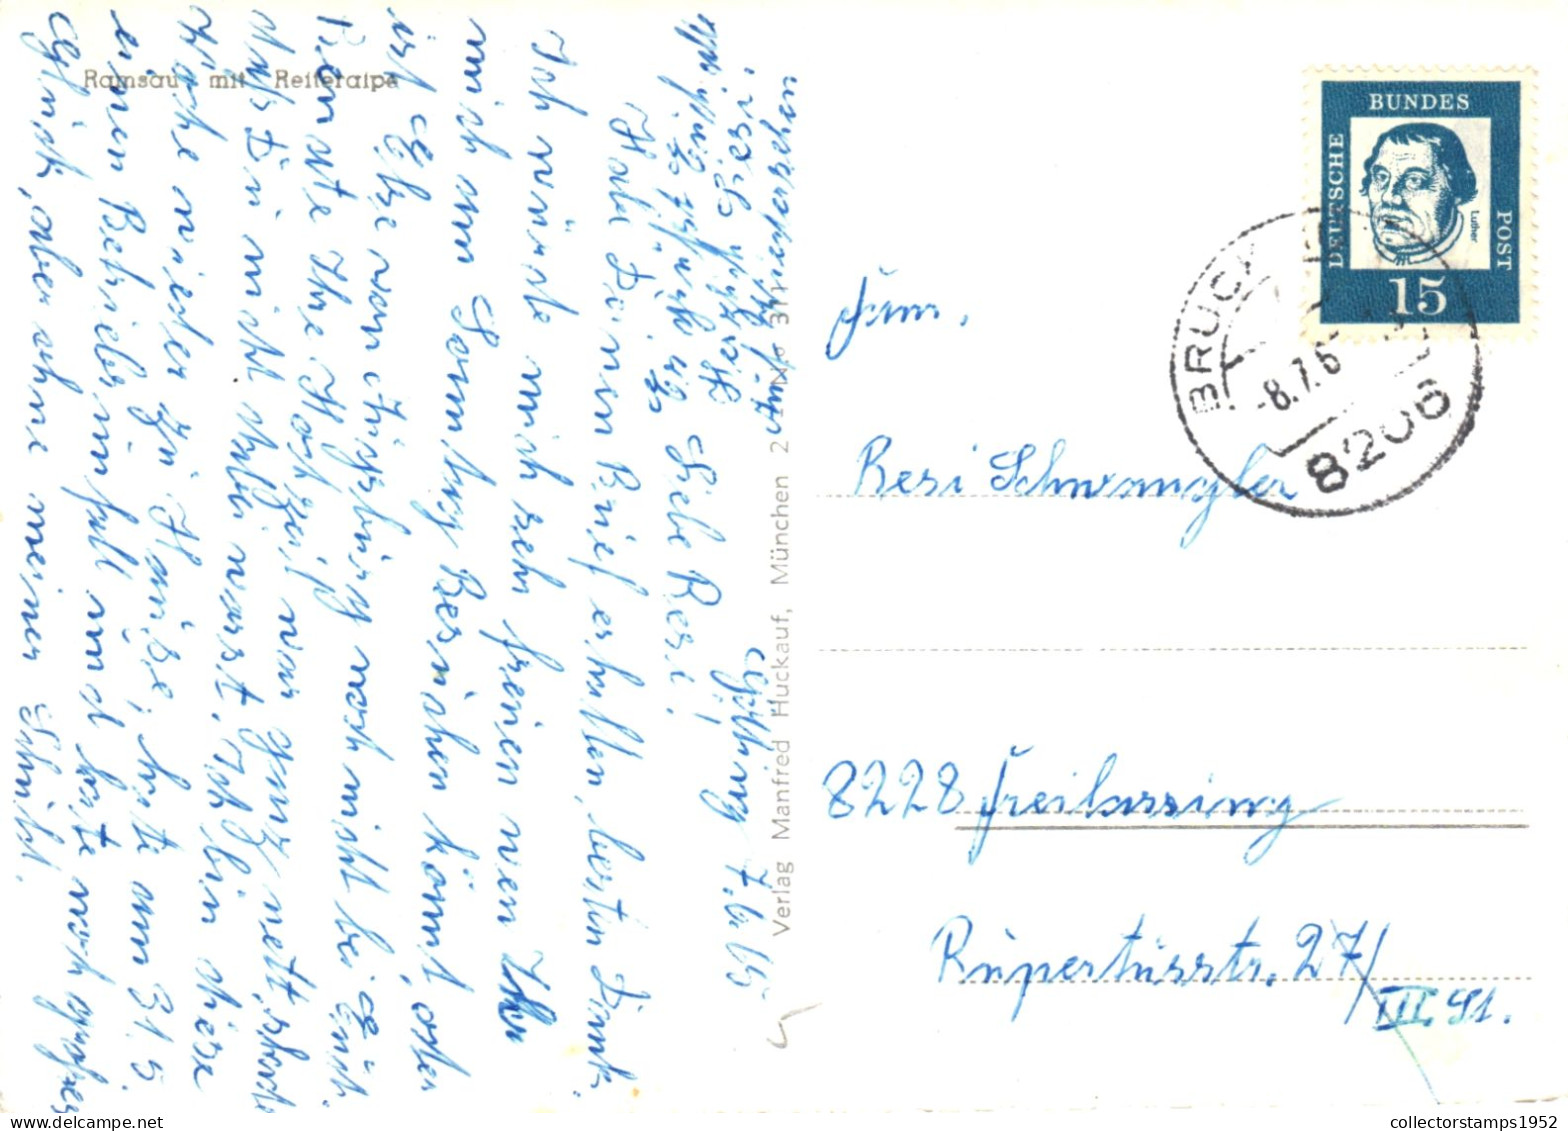 Ramsau mit Reiteralpe
Götting 7.6.65
Liebe Resi!
Habe Deinen Brief erhalten, besten Dank.
Ich würde mich sehr freuen wen Ihr
mich am Sonntag Besuchen könnt, oder
ist
noch nicht bei Euch.
Ihre Hochzeit war ganz nett, schade
das Du nicht dabei warst. Ich bin diese
Woche wieder zu Hause, hatte am 31.5.
einen Betriebsunfall und hatte noch großes
Glück, aber ohne meiner Schuld.
Auf Wiedersehen
Verlag Manfred Huckauf, München 2
DEUTSCHE
BUNDES
POST
Luther
15
BRUCK
-8.7.6
8206
Fam.
Resi Schwangler
8228 Freilassing
Rupertusstr. 27/
III. St.
collectorstamps1952